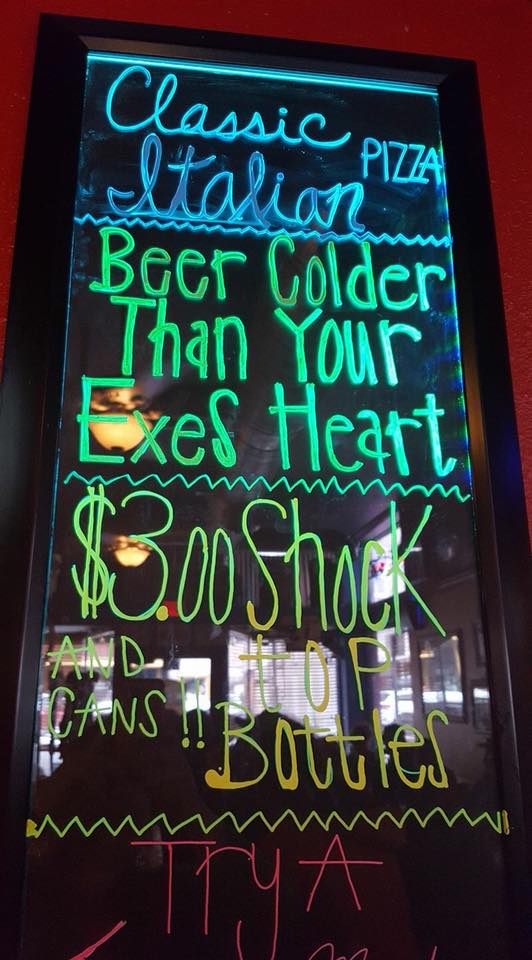 Classic
Italian PIZZA
Beer Colder
Than Your
Exes Heart
$3.00 Shock
top
AND
CANS!!
Bottles
Try A